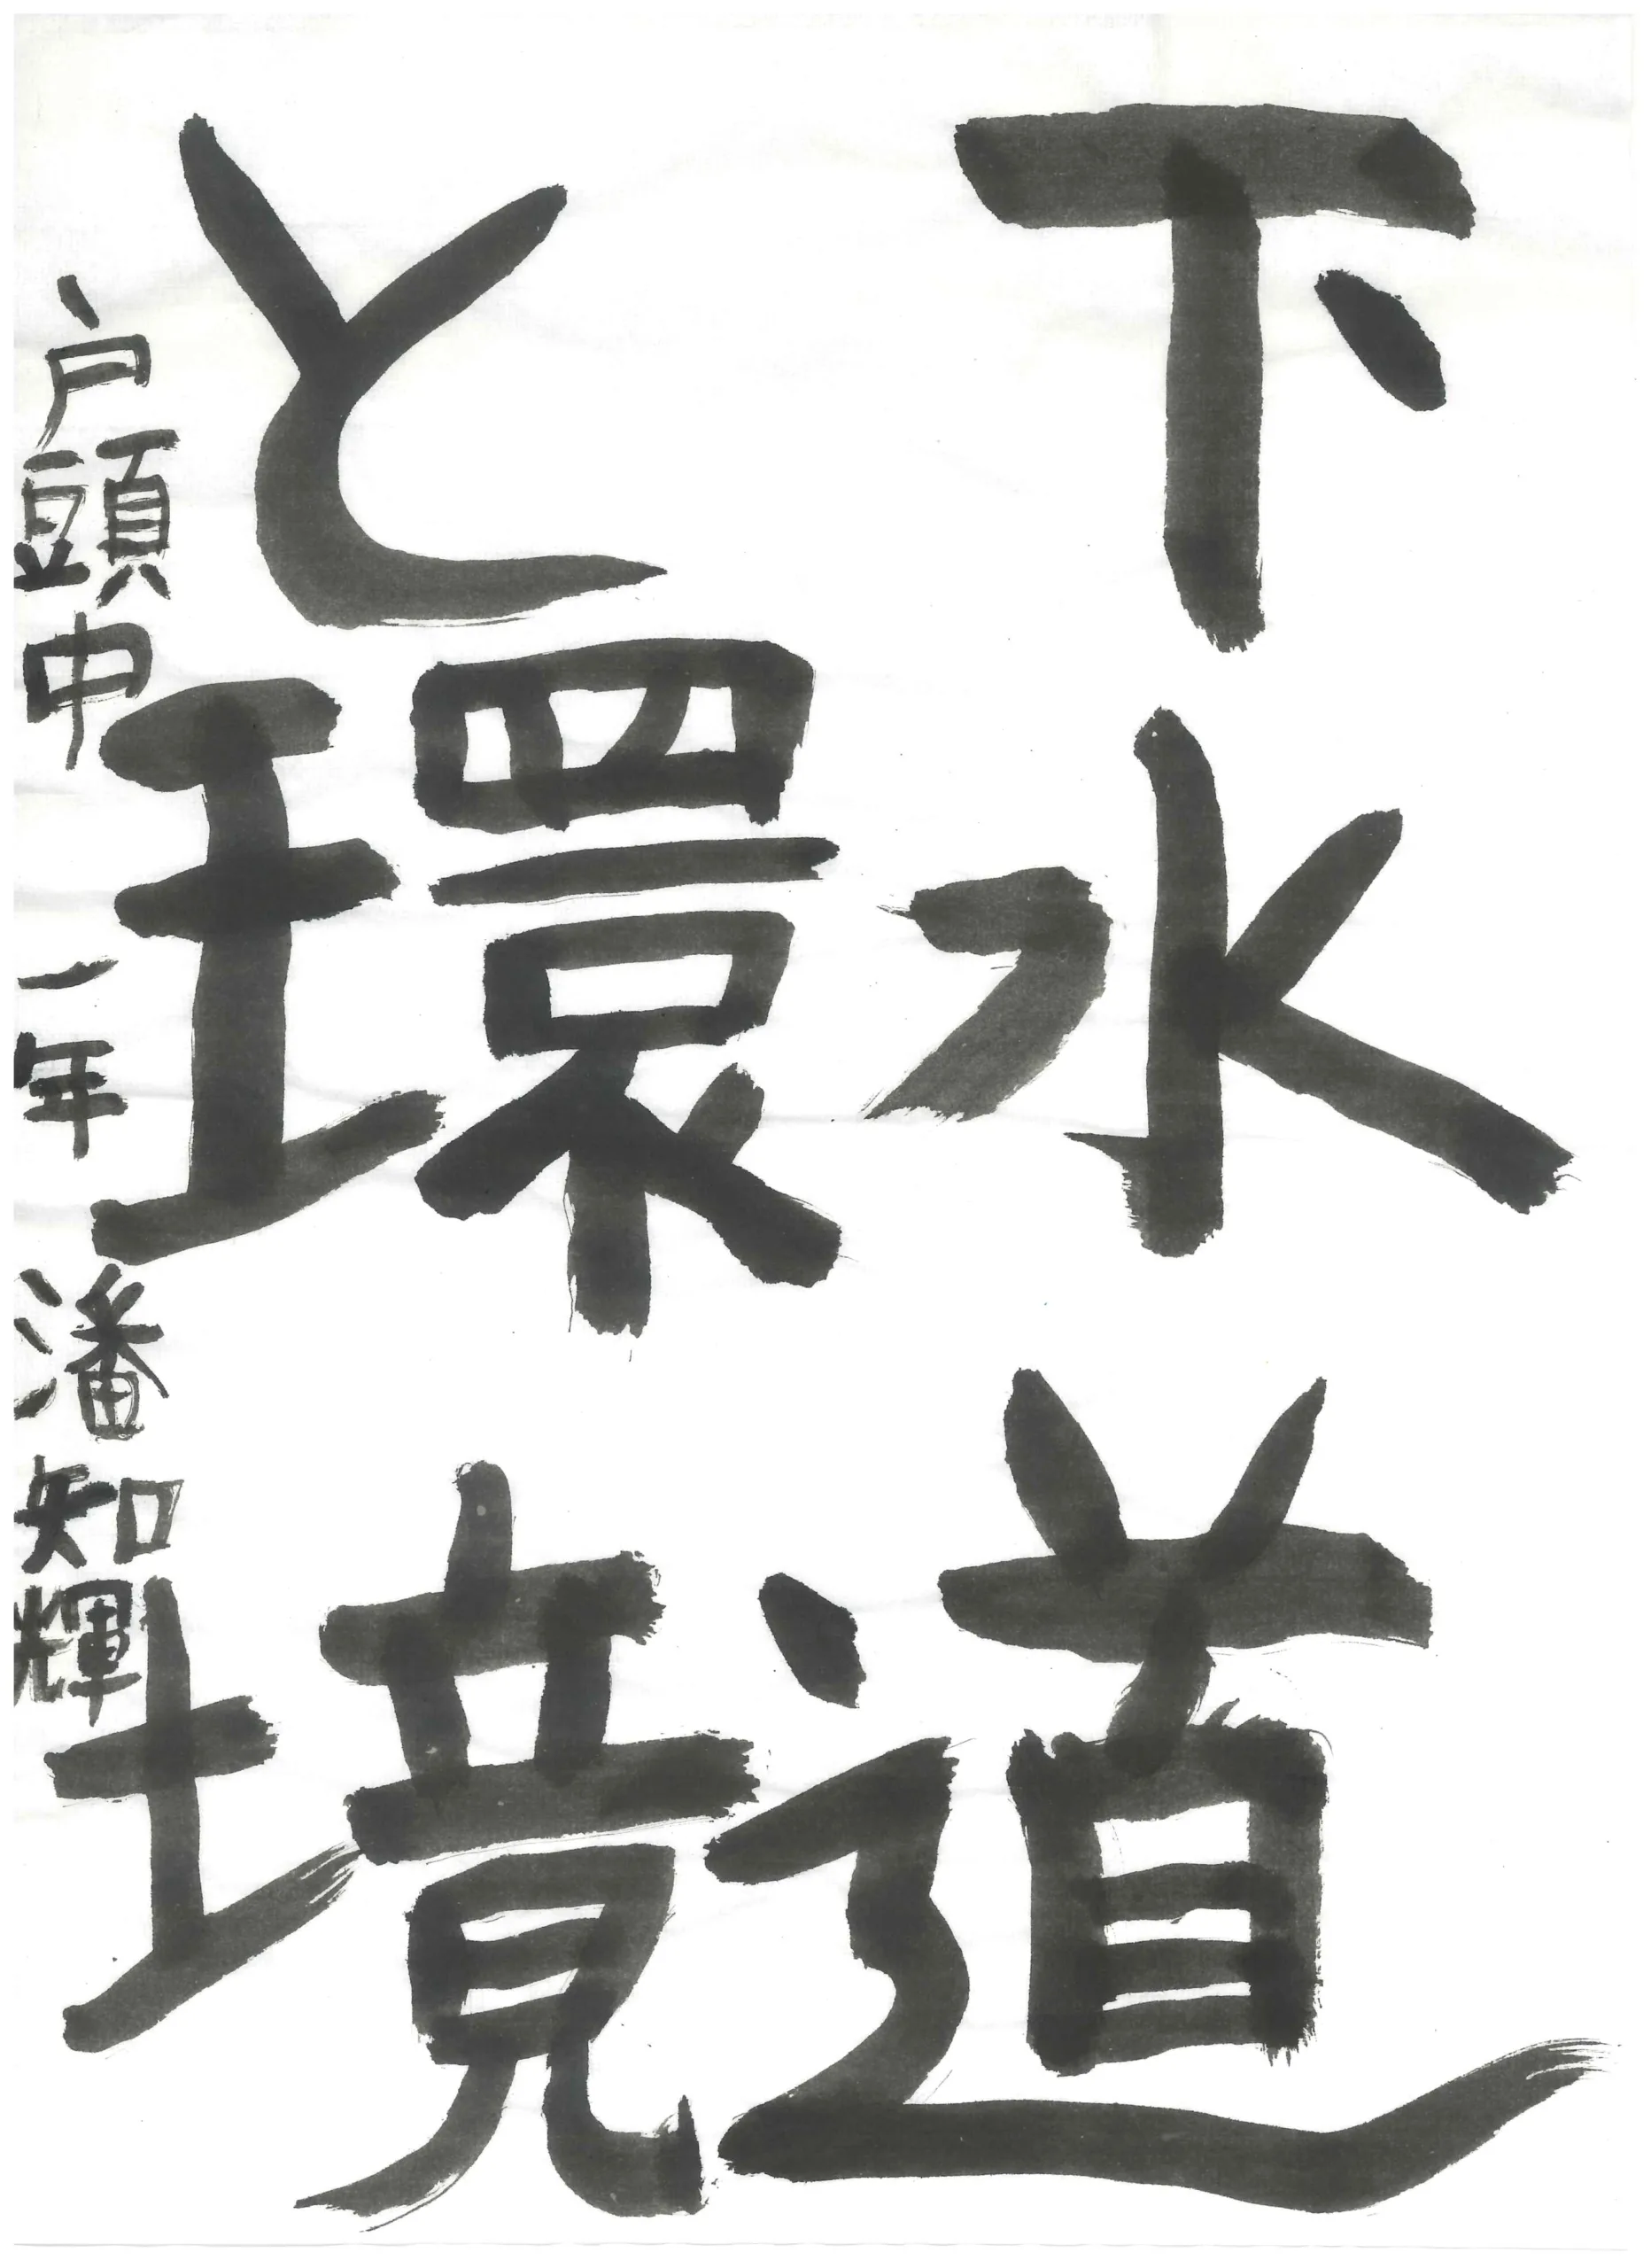 下水道
と環境
戸頭中 一年 潘知輝